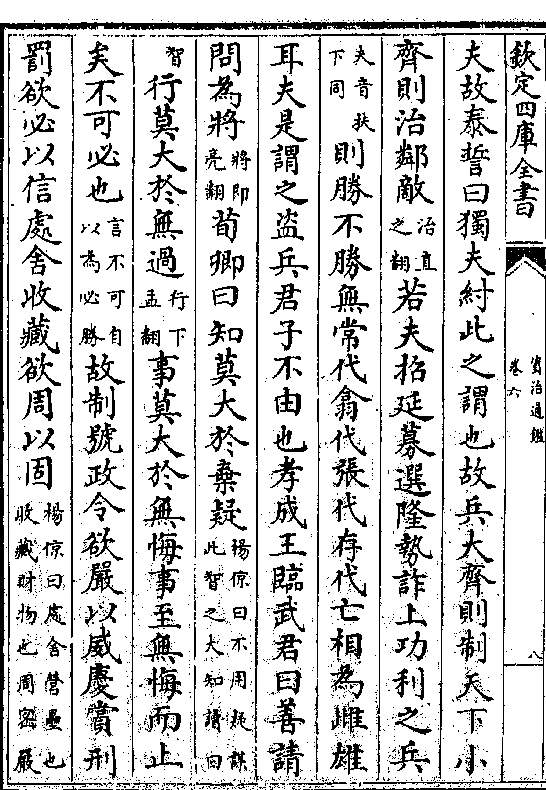 欽定四庫全書
資治通鑑
卷六
八
夫故泰誓曰獨夫紂此之謂也故兵大齊則制天下小
齊則治鄰敵治直之翻若夫招延募選隆勢詐上功利之兵
夫音扶下同則勝不勝無常代翕代張代存代亡相為雌雄
耳夫是謂之盜兵君子不由也孝成王臨武君曰善請
問為將將即亮翻荀卿曰知莫大於棄疑楊倞曰不用疑謀此智之大知讀曰
智行莫大於無過行下孟翻事莫大於無悔事至無悔而止
矣不可必也言不可自以為必勝故制號政令欲嚴以威慶賞刑
罰欲必以信處舍收藏欲周以固楊倞曰處舍營壘也收藏財物也周密嚴